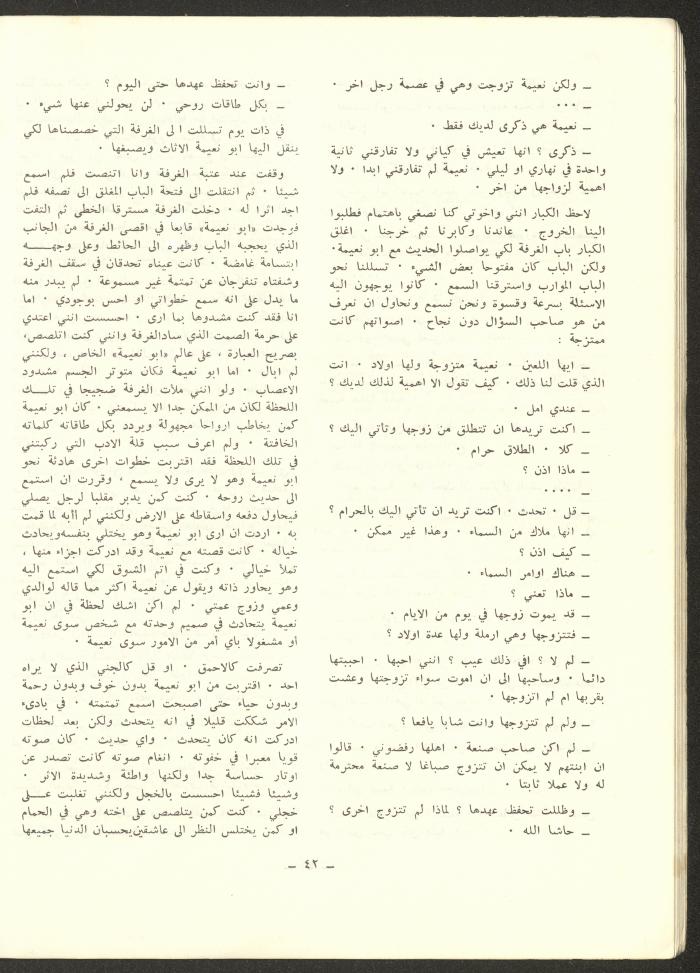 ـ ولكن نعيمة تزوجت وهي في عصمة رجل اخر ٠
ـ ٠٠٠
ـ نعيمة هي ذكرى لديك فقط ٠
ـ ذكرى ؟ انها تعيش في كياني ولا تفارقني ثانية
واحدة في نهاري او ليلي ٠ نعيمة لم تفارقني ابدا ٠ ولا
اهمية لزواجها من اخر ٠
لاحظ الكبار انني واخوتي كنا نصغي باهتمام فطلبوا
الينا الخروج ٠ عاندنا وكابرنا ثم خرجنا ٠ اغلق
الكبار باب الغرفة لكي يواصلوا الحديث مع ابو نعيمة٠
ولكن الباب كان مفتوحا بعض الشيء ٠ تسللنا نحو
الباب الموارب واسترقنا السمع ٠ كانوا يوجهون اليه
الاسئلة بسرعة وقسوة ونحن نسمع ونحاول ان نعرف
من هو صاحب السؤال دون نجاح ٠ اصواتهم كانت
ممتزجة :
ـ ايها اللعين ٠ نعيمة متزوجة ولها اولاد ٠ انت
الذي قلت لنا ذلك ٠ كيف تقول الا اهمية لذلك لديك ؟
ـ عندي امل ٠
ـ اكنت تريدها ان تتطلق من زوجها وتاتي اليك ؟
ـ كلا ٠ الطلاق حرام ٠
ـ ماذا اذن ؟
ـ ٠٠٠٠
ـ قل ٠ تحدث ٠ اكنت تريد ان تأتي اليك بالحرام ؟
ـ انها ملاك من السماء ٠ وهذا غير ممكن ٠
ـ كيف اذن ؟
ـ هناك اوامر السماء ٠
ـ ماذا تعني ؟
ـ قد يموت زوجها في يوم من الايام ٠
ـ فتتزوجها وهي ارملة ولها عدة اولاد ؟
ـ لم لا ؟ افي ذلك عيب ؟ انني احبها ٠ احببتها
دائما ٠ وساحبها الى ان اموت سواء تزوجتها وعشت
بقربها ام لم اتزوجها ٠
ـ ولم لم تتزوجها وانت شابا يافعا ؟
ـ لم اكن صاحب صنعة ٠ اهلها رفضوني ٠ قالوا
ان ابنتهم لا يمكن ان تتزوج صباغا لا صنعة محترمة
له ولا عملا ثابتا ٠
ـ وظللت تحفظ عهدها ؟ لماذا لم تتزوج اخرى ؟
ـ حاشا الله ٠
ـ وانت تحفظ عهدها حتى اليوم ؟
ـ بكل طاقات روحي ٠ لن يحولني عنها شيء ٠
في ذات يوم تسللت الى الغرفة التي خصصناها لكي
ينقل اليها ابو نعيمة الاثاث ويصبغها ٠
وقفت عند عتبة الغرفة وانا اتنصت فلم اسمع
شيئا ٠ ثم انتقلت الى فتحة الباب المغلق الى نصفه فلم
اجد اثرا له ٠ دخلت الغرفة مسترقا الخطى ثم التفت
فوجدت «ابو نعيمة» قابعا في اقصى الغرفة من الجانب
الذي يحجبه الباب وظهره الى الحائط وعلى وجهــــه
ابتسامة غامضة ٠ كانت عيناه تحدقان في سقف الغرفة
وشفتاه تنفرجان عن تمتمة غير مسموعة ٠ لم يبدر منه
ما يدل على انه سمع خطواتي او احس بوجودي ٠ اما
انا فقد كنت مشدوها بما ارى ٠ احسست انني اعتدي
على حرمة الصمت الذي سادالغرفة وانني كنت اتلصص،
بصريح العبارة ، على عالم «ابو نعيمة» الخاص ، ولكنني
لم ابال ٠ اما ابو نعيمة فكان متوتر الجسم مشدود
الاعصاب ٠ ولو انني ملأت الغرفة ضجيجا في تلــــك
اللحظة لكان من الممكن جدا الا يسمعني ٠ كان ابو نعيمة
كمن يخاطب ارواحا مجهولة ويردد بكل طاقاته كلماته
الخافتة ٠ ولم اعرف سبب قلة الادب التي ركبتني
في تلك اللحظة فقد اقتربت خطوات اخرى هادئة نحو
ابو نعيمة وهو لا يرى ولا يسمع ، وقررت ان استمع
الى حديث روحه ٠ كنت كمن يدبر مقلبا لرجل يصلي
فيحاول دفعه واسقاطه على الارض ولكنني لم أأبه لما قمت
به ٠ اردت ان ارى ابو نعيمة وهو يختلي بنفسهويحادث
خياله ٠ كانت قصته مع نعيمة وقد ادركت اجزاء منها ،
تملأ خيالي ٠ وكنت في اتم الشوق لكي استمع اليه
وهو يحاور ذاته ويقول عن نعيمة اكثر مما قاله لوالدي
وعمي وزوج عمتي ٠ لم اكن اشك لحظة في ان ابو
نعيمة يتحادث في صميم وحدته مع شخص سوى نعيمة
أو مشغولا باي أمر من الامور سوى نعيمة ٠
تصرفت كالاحمق ٠ او قل كالجني الذي لا يراه
احد ٠ اقتربت من ابو نعيمة بدون خوف وبدون رحمة
وبدون حياء حتى اصبحت اسمع تمتمته ٠ في بادىء
الامر شككت قليلا في انه يتحدث ولكن بعد لحظات
ادركت انه كان يتحدث ٠ واي حديث ٠ كان صوته
قويا معبرا في خفوته ٠ انغام صوته كانت تصدر عن
اوتار حساسة جدا ولكنها واطئة وشديدة الاثر ٠
وشيئا فشيئا احسست بالخجل ولكنني تغلبت عــــلى
خجلي ٠ كنت كمن يتلصص على اخته وهي في الحمام
او كمن يختلس النظر الى عاشقينيحسبان الدنيا جميعها
ـ ٤٢ ـ